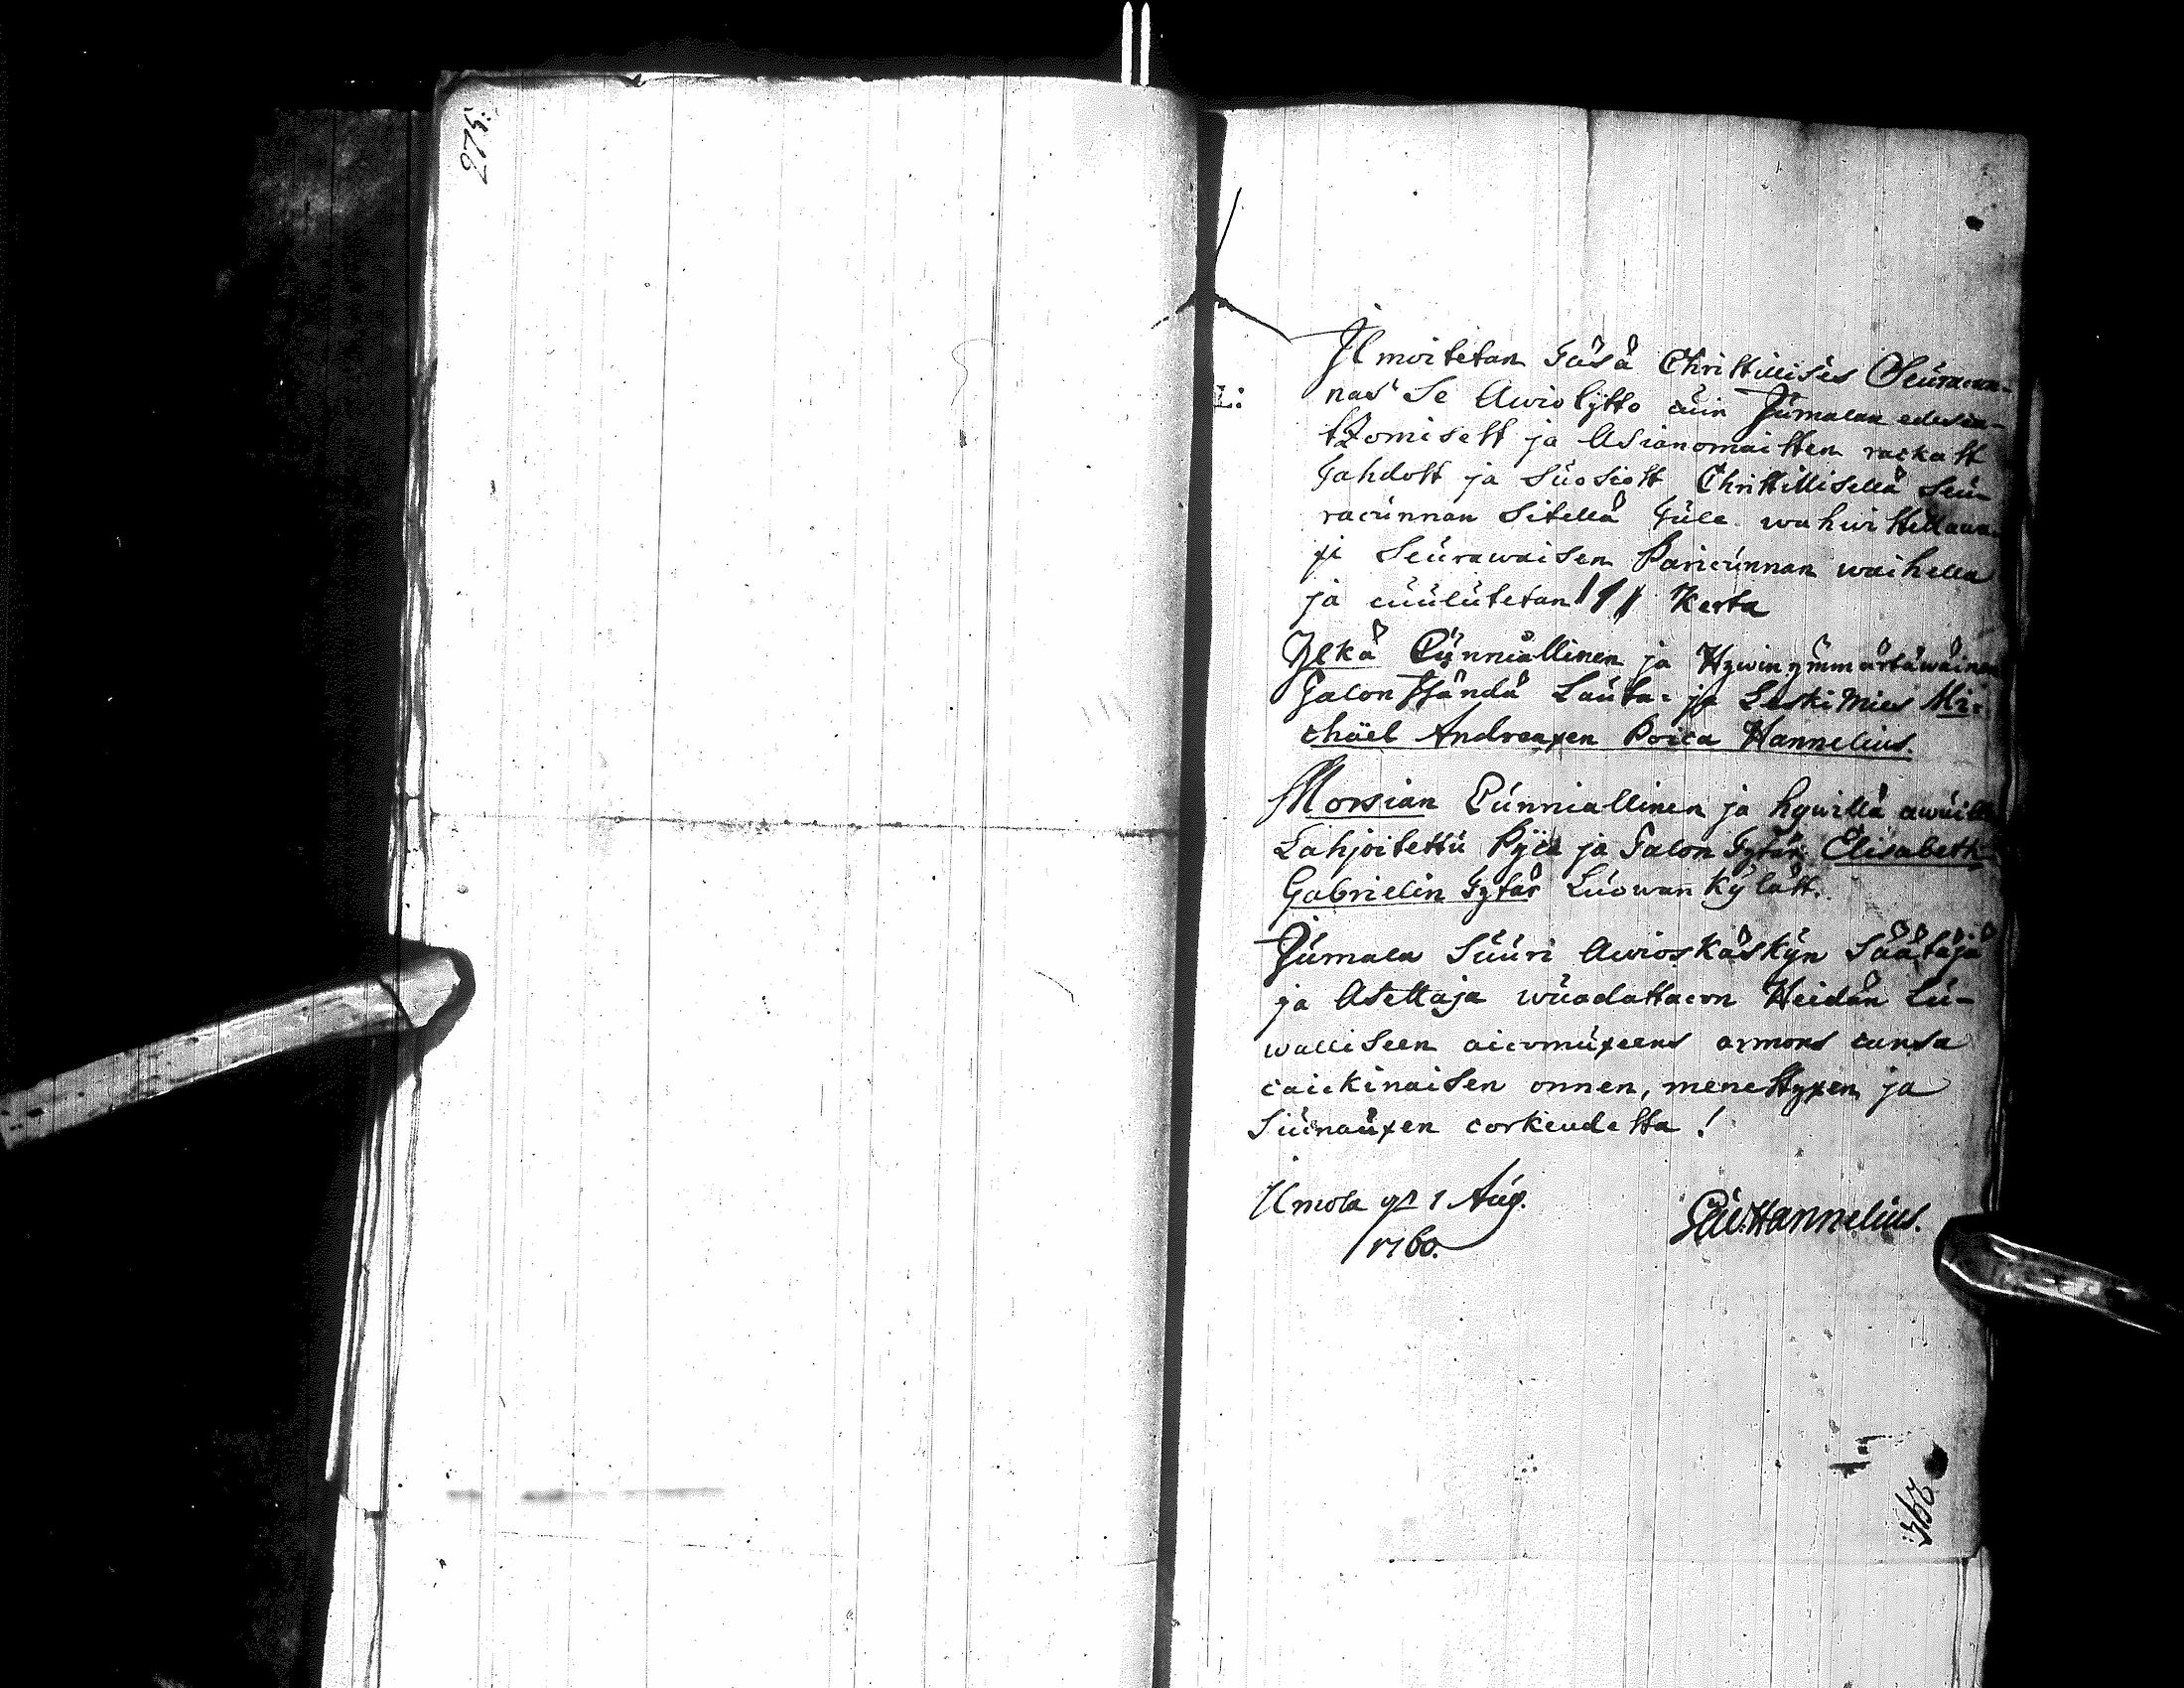 L:
Ilmoitetan Täsä Christillises Seuracun-
nas Se Awioljtto cuin Jumalan edesca-
tzomisest ja Asianomaisten rackast
Tahdost ja suosiost Christillisellä Seu-
racunnan Sitellä Tule wahwistettawa-
xi Seurawaisen Paricunnan waihella
ja cuulutetan 1 Kerta
Ylkä Cunniallinen ja Hywin ymmärtäwäinen
Talon Isändä Lauta- ja Leski Mies Mi-
chäel Andreaxen Poica Hannelius.
Morsian Cunniallinen ja hywillä awuilla
Lahjoitettu Pijca ja Talon Tytär Elisabeth
Gabrielin Tytär Luowan Kylätt.
Jumala Suuri Awioskäskyn Säätäjä
ja Asettaja wuodattacon Heidän Lu-
walliseen aicomuxeens armons cansa
caickinaisen onnen, menestyxen ja
Siunauxen corkeudesta!
Ilmola 1 Aug.
1760.
Hannelius.